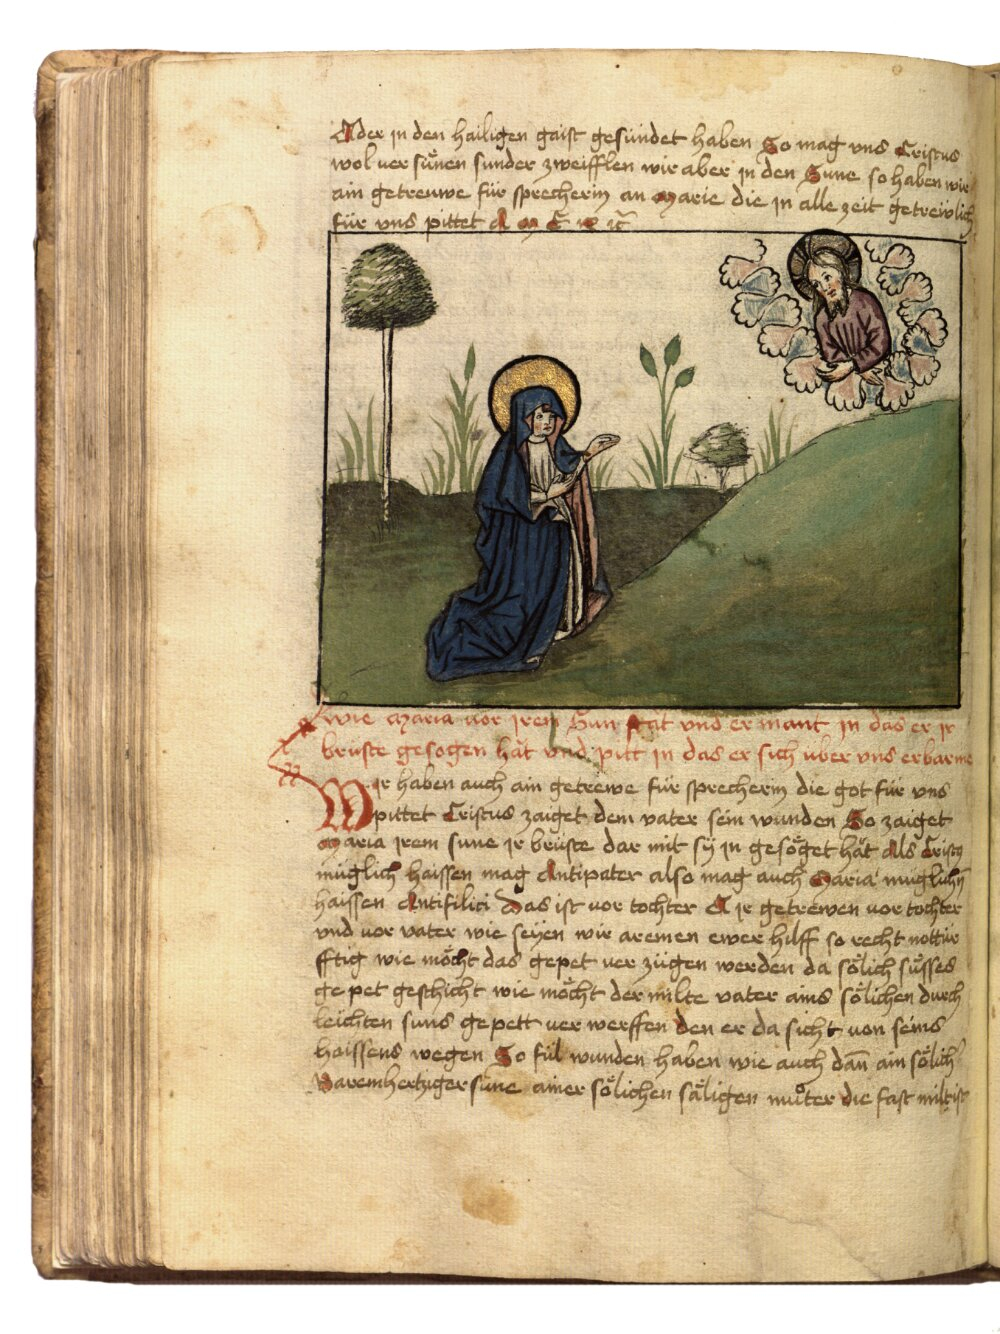 Oder in den hailigen gaist gesündet haben So mag vns Cristus
wol ver sünen sunder zweifflen wir aber in den Sune so haben wir
ain getreuwe für sprecherin an Marie die in alle zeit getrewlich
für vns pittet A M E N
wie Maria vor irem Sun stat vnd er mant in das er ir
brüste gesogen hät vnd pitt in das er sich uber vns erbarme
Wir haben auch ain getrewe für sprecherin die got für vns
pittet Cristus zaiget dem vater sein wunden So zaiget
Maria irem sune ir brüste dar mit sy in gesöget hät Als Cristus
müglich haissen mag Antipater also mag auch Maria müglich
haissen Antifilia das ist vor tochter A ir getrewen vor tochter
vnd vor vater wie seyen wir aremen ewer hilff so recht nottur
fftig wie möcht das gepet ver zügen werden da sölich süsses
ge pet geschicht wie möcht der milte vater ains sölichen durch
leichten suns gepett ver werffen den er da sicht von seins
haissens wegen So fül wunden haben wie auch dan ain sölich
Baremhertziger sune ainer sölichen säligen muoter die fast milt ist